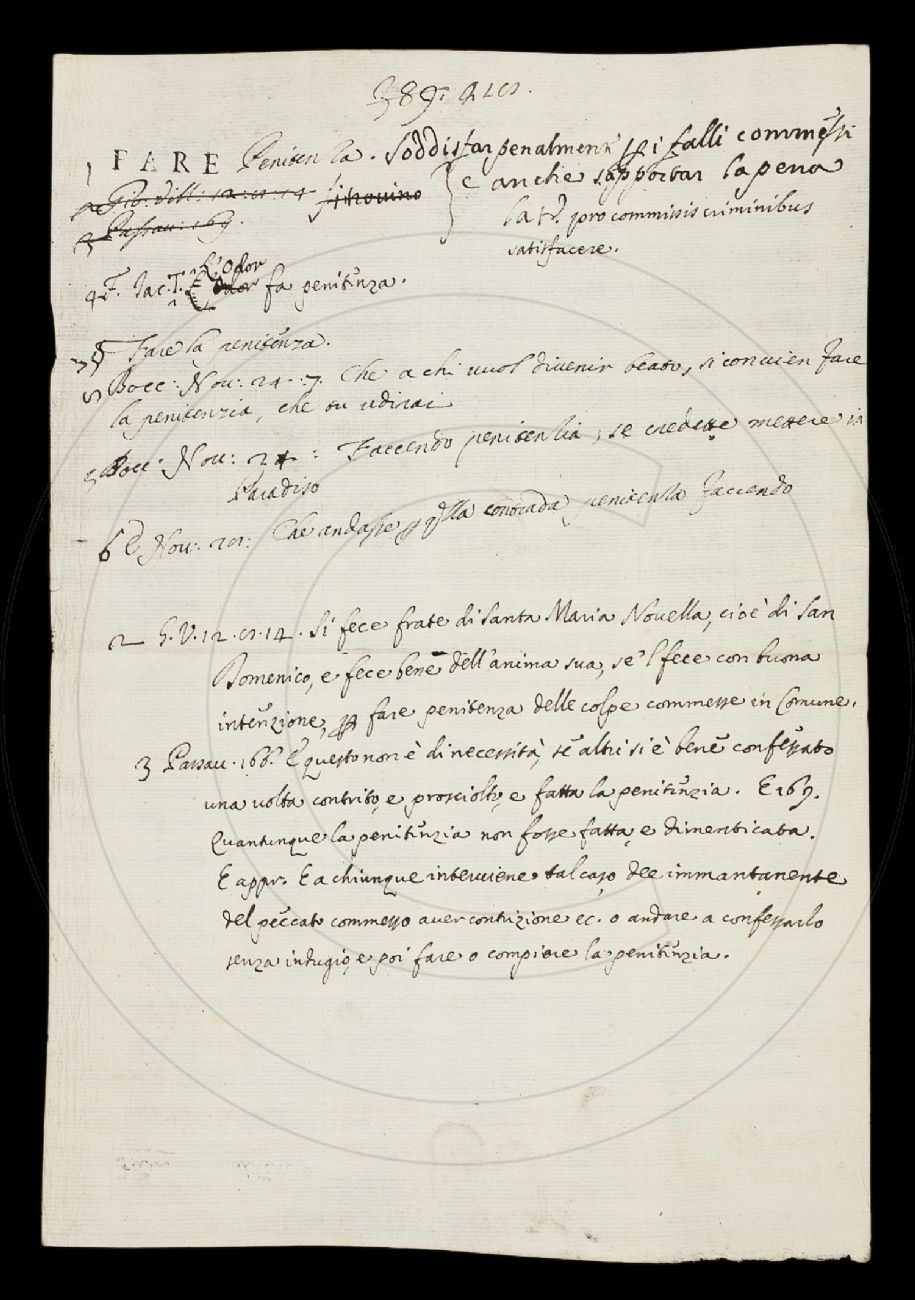 389.
1 FARE Penitenzia. Soddisfar penalmente p i falli commessi
e anche sopportar la pena
2 Gio. Vill: 12. 11. 14 si trovino
Lat. pro commissis criminibus
3 Passau: 169.
satisfacere.
4 Iac. T. fa penitenza.
Fare la penitenza.
5 Bocc: Nov: 24. 7. Che a chi vuol divenir beato, si convien fare
la penitenzia, che tu udirai
5 Bocc: Nov: 24: Faccendo penitenzia, se credette mettere in
Paradiso
6 E Nov: Che andasse p qlla contrada penitenzia faccendo
2 G. V. 12. 11. 14. Si fece frate di Santa Maria Novella, cioè di San
Domenico, e fece bene dell'anima sua, se 'l fece con buona
intenzione, p fare penitenza delle colpe commesse in Comune.
3 Passau. 166. E questo non è di necessità, se altri si è bene confessato
una volta contrito, e prosciolto, e fatta la penitenzia. E 169.
Quantunque la penitenzia non fosse fatta, e dimenticata.
E appr. E a chiunque interviene tal caso, dee immantanente
del peccato commesso aver contrizione ec. o andare a confessarlo
senza indugio, e poi fare o compiere la penitenzia.